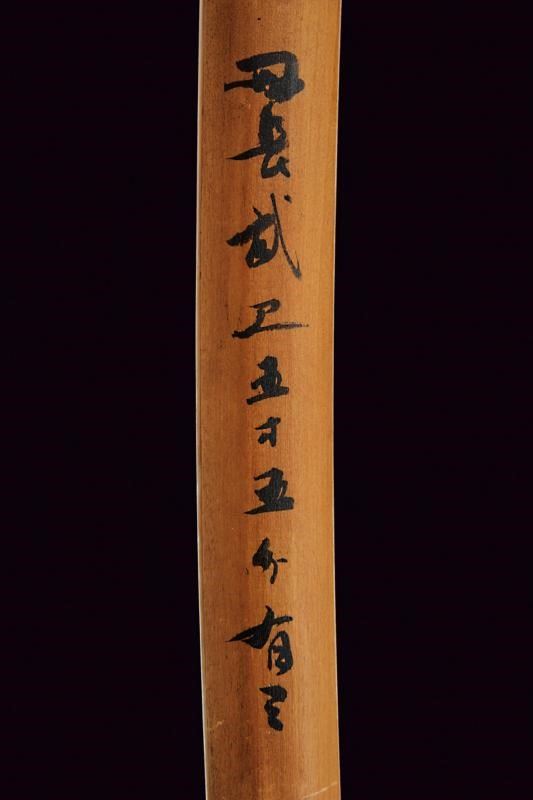 刃長弐尺五寸五分有之